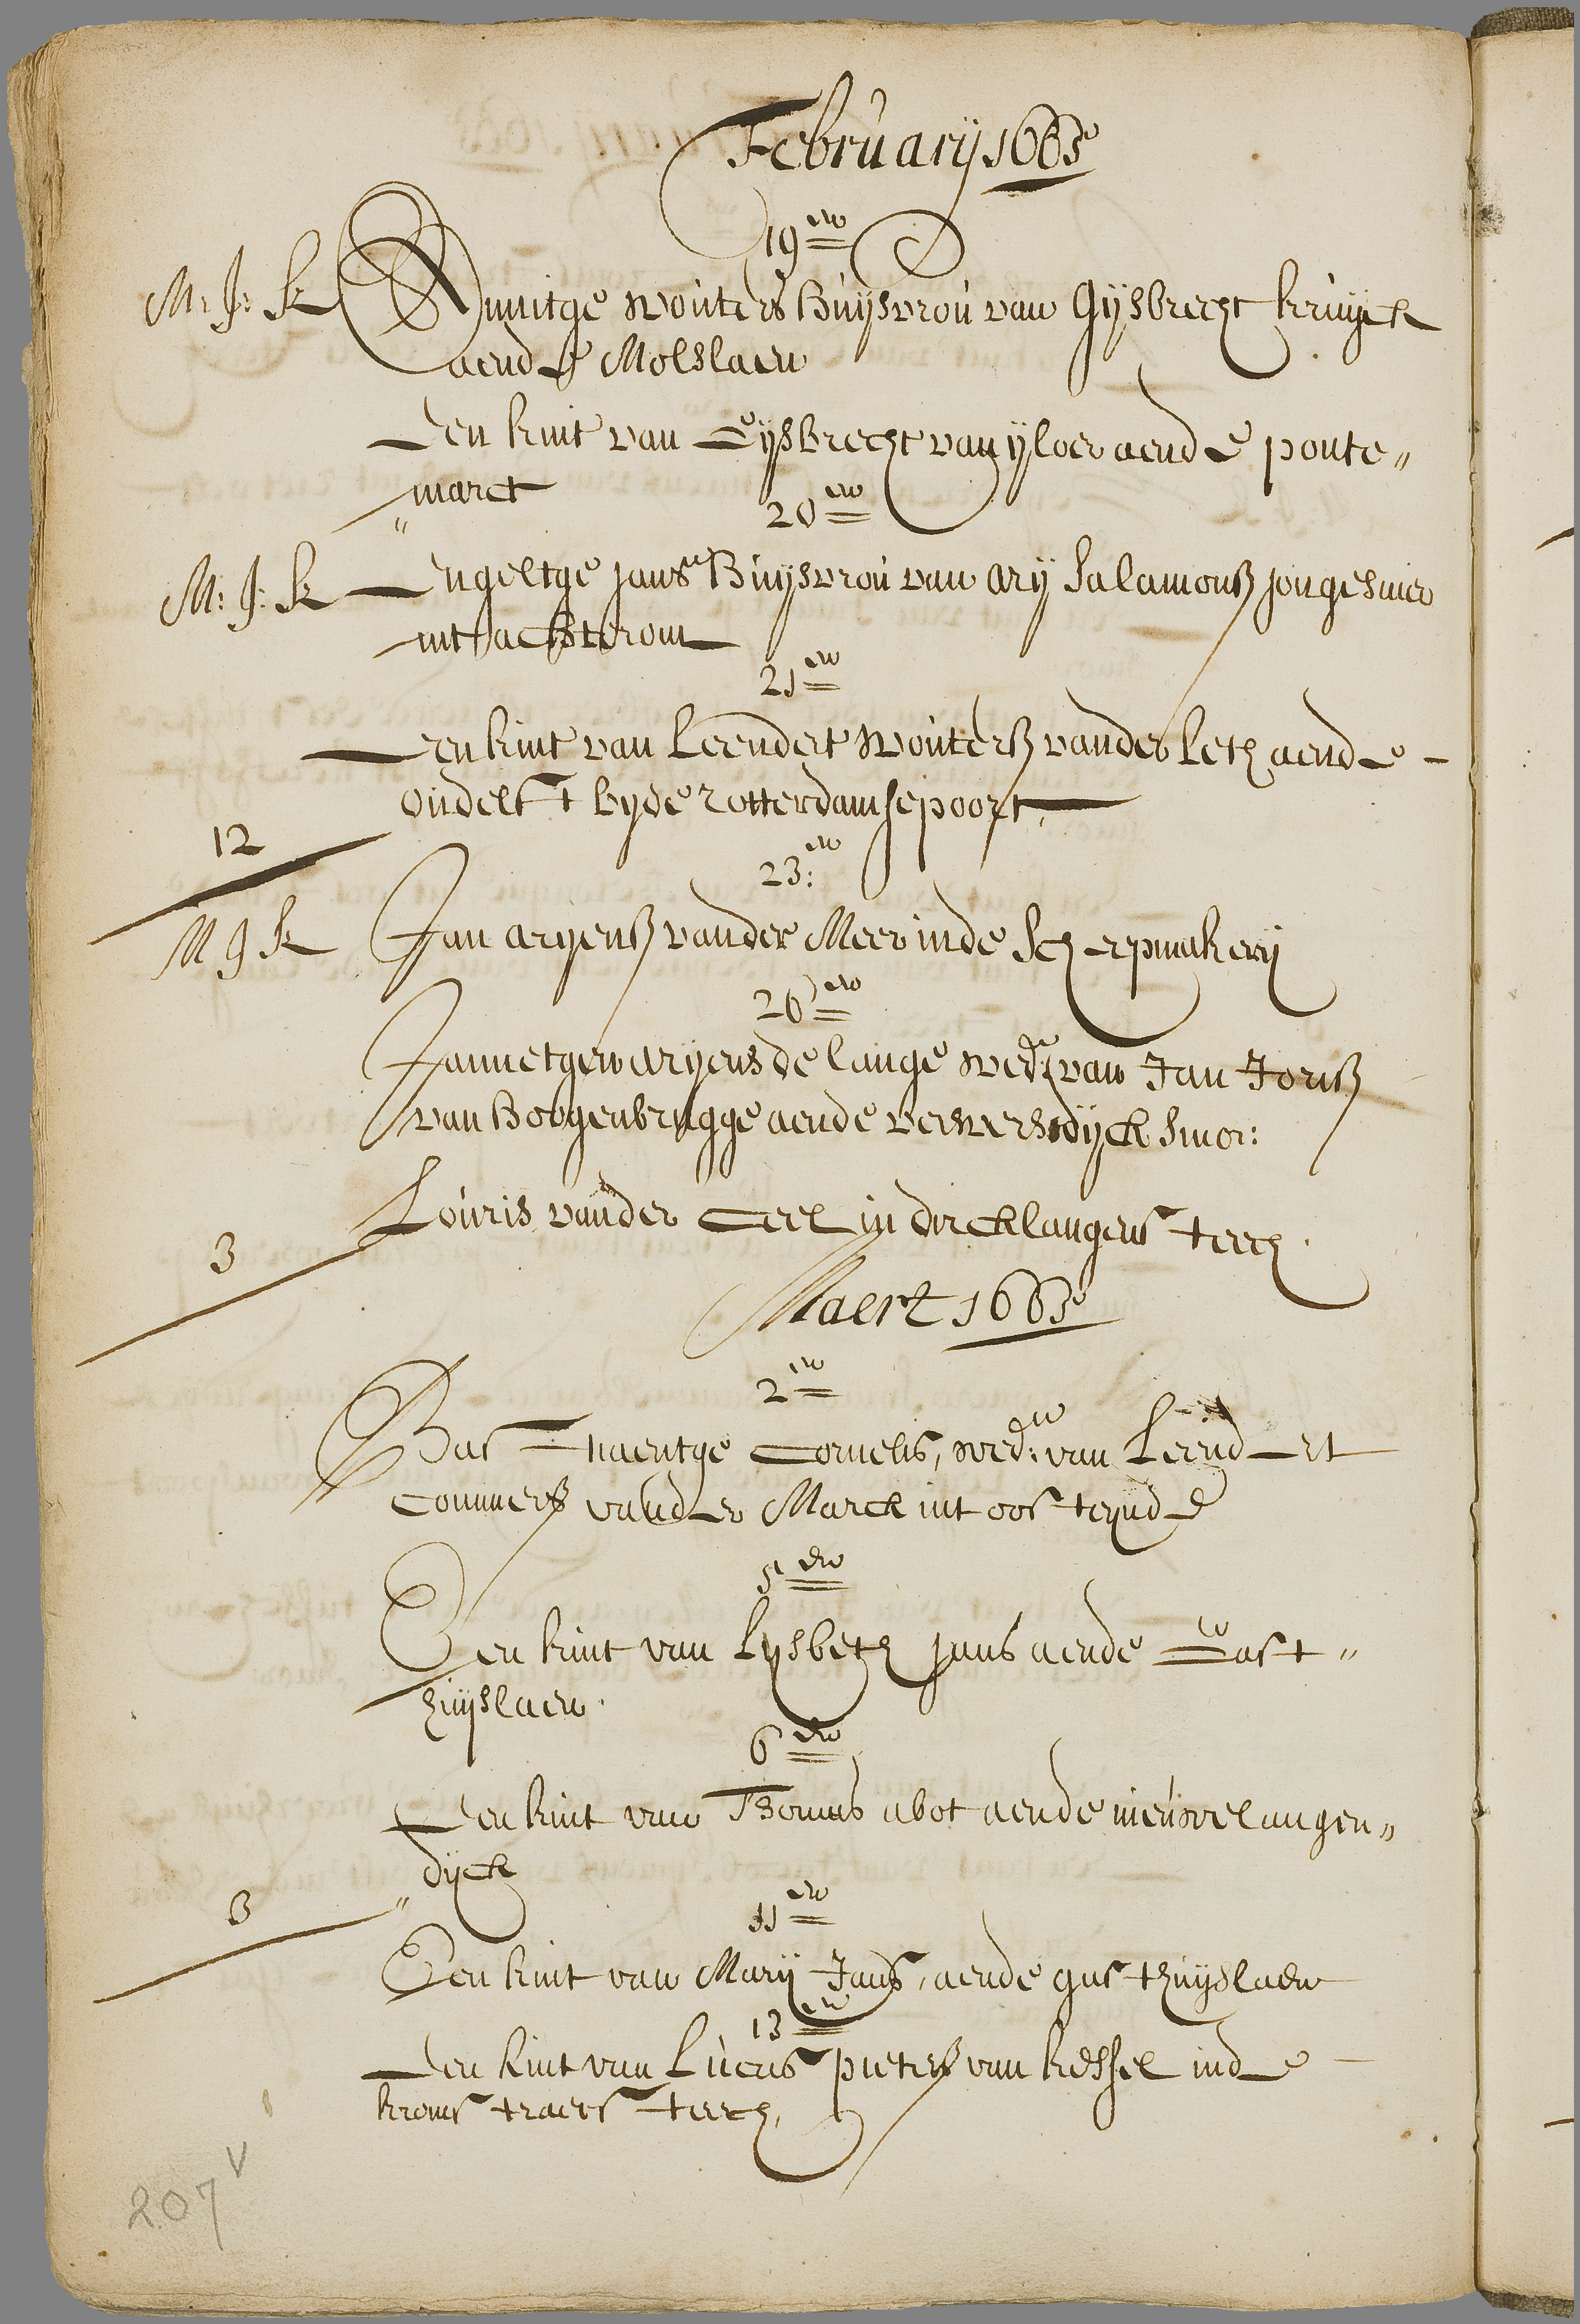 February 1663
19en
M: J: K Annitge wouters huysvrou van Gysbrecht kruyck
aende Molslaen
Een kint van Gysbrecht van yloer aende ponte„
„marct
20en
M: J: K Engeltge jans huysvrou van ary salamonsz jongesmer
int achterom
21en
Een kint van Leendert Woutersz vander Leth aende -
oudelft by de rotterdamsepoort
12
23: en
M J K Jan aryensz vander Meer inde
26en
Jannetgen aryens de lange wede van Jan Jorisz
van Hoogenbrugge aende verwersdyck
Louris vander Ceel in dircklangensteech.
3
Maert 1663
2en
Bastiaentge Cornelis, wede: van Leendert
Commersz vander Marck int oosteynde
5en
Een kint van Lysbeth jans aende Gast„
huyslaen.
6en
Een kint van Thomas abot aende nieuwelangen„
„dyck
3
11en
Een kint van Mary Jans, aende gasthuyslaen
13en
Een kint van Lucas pietersz van kessel inde
kromstraetsteech,
207v